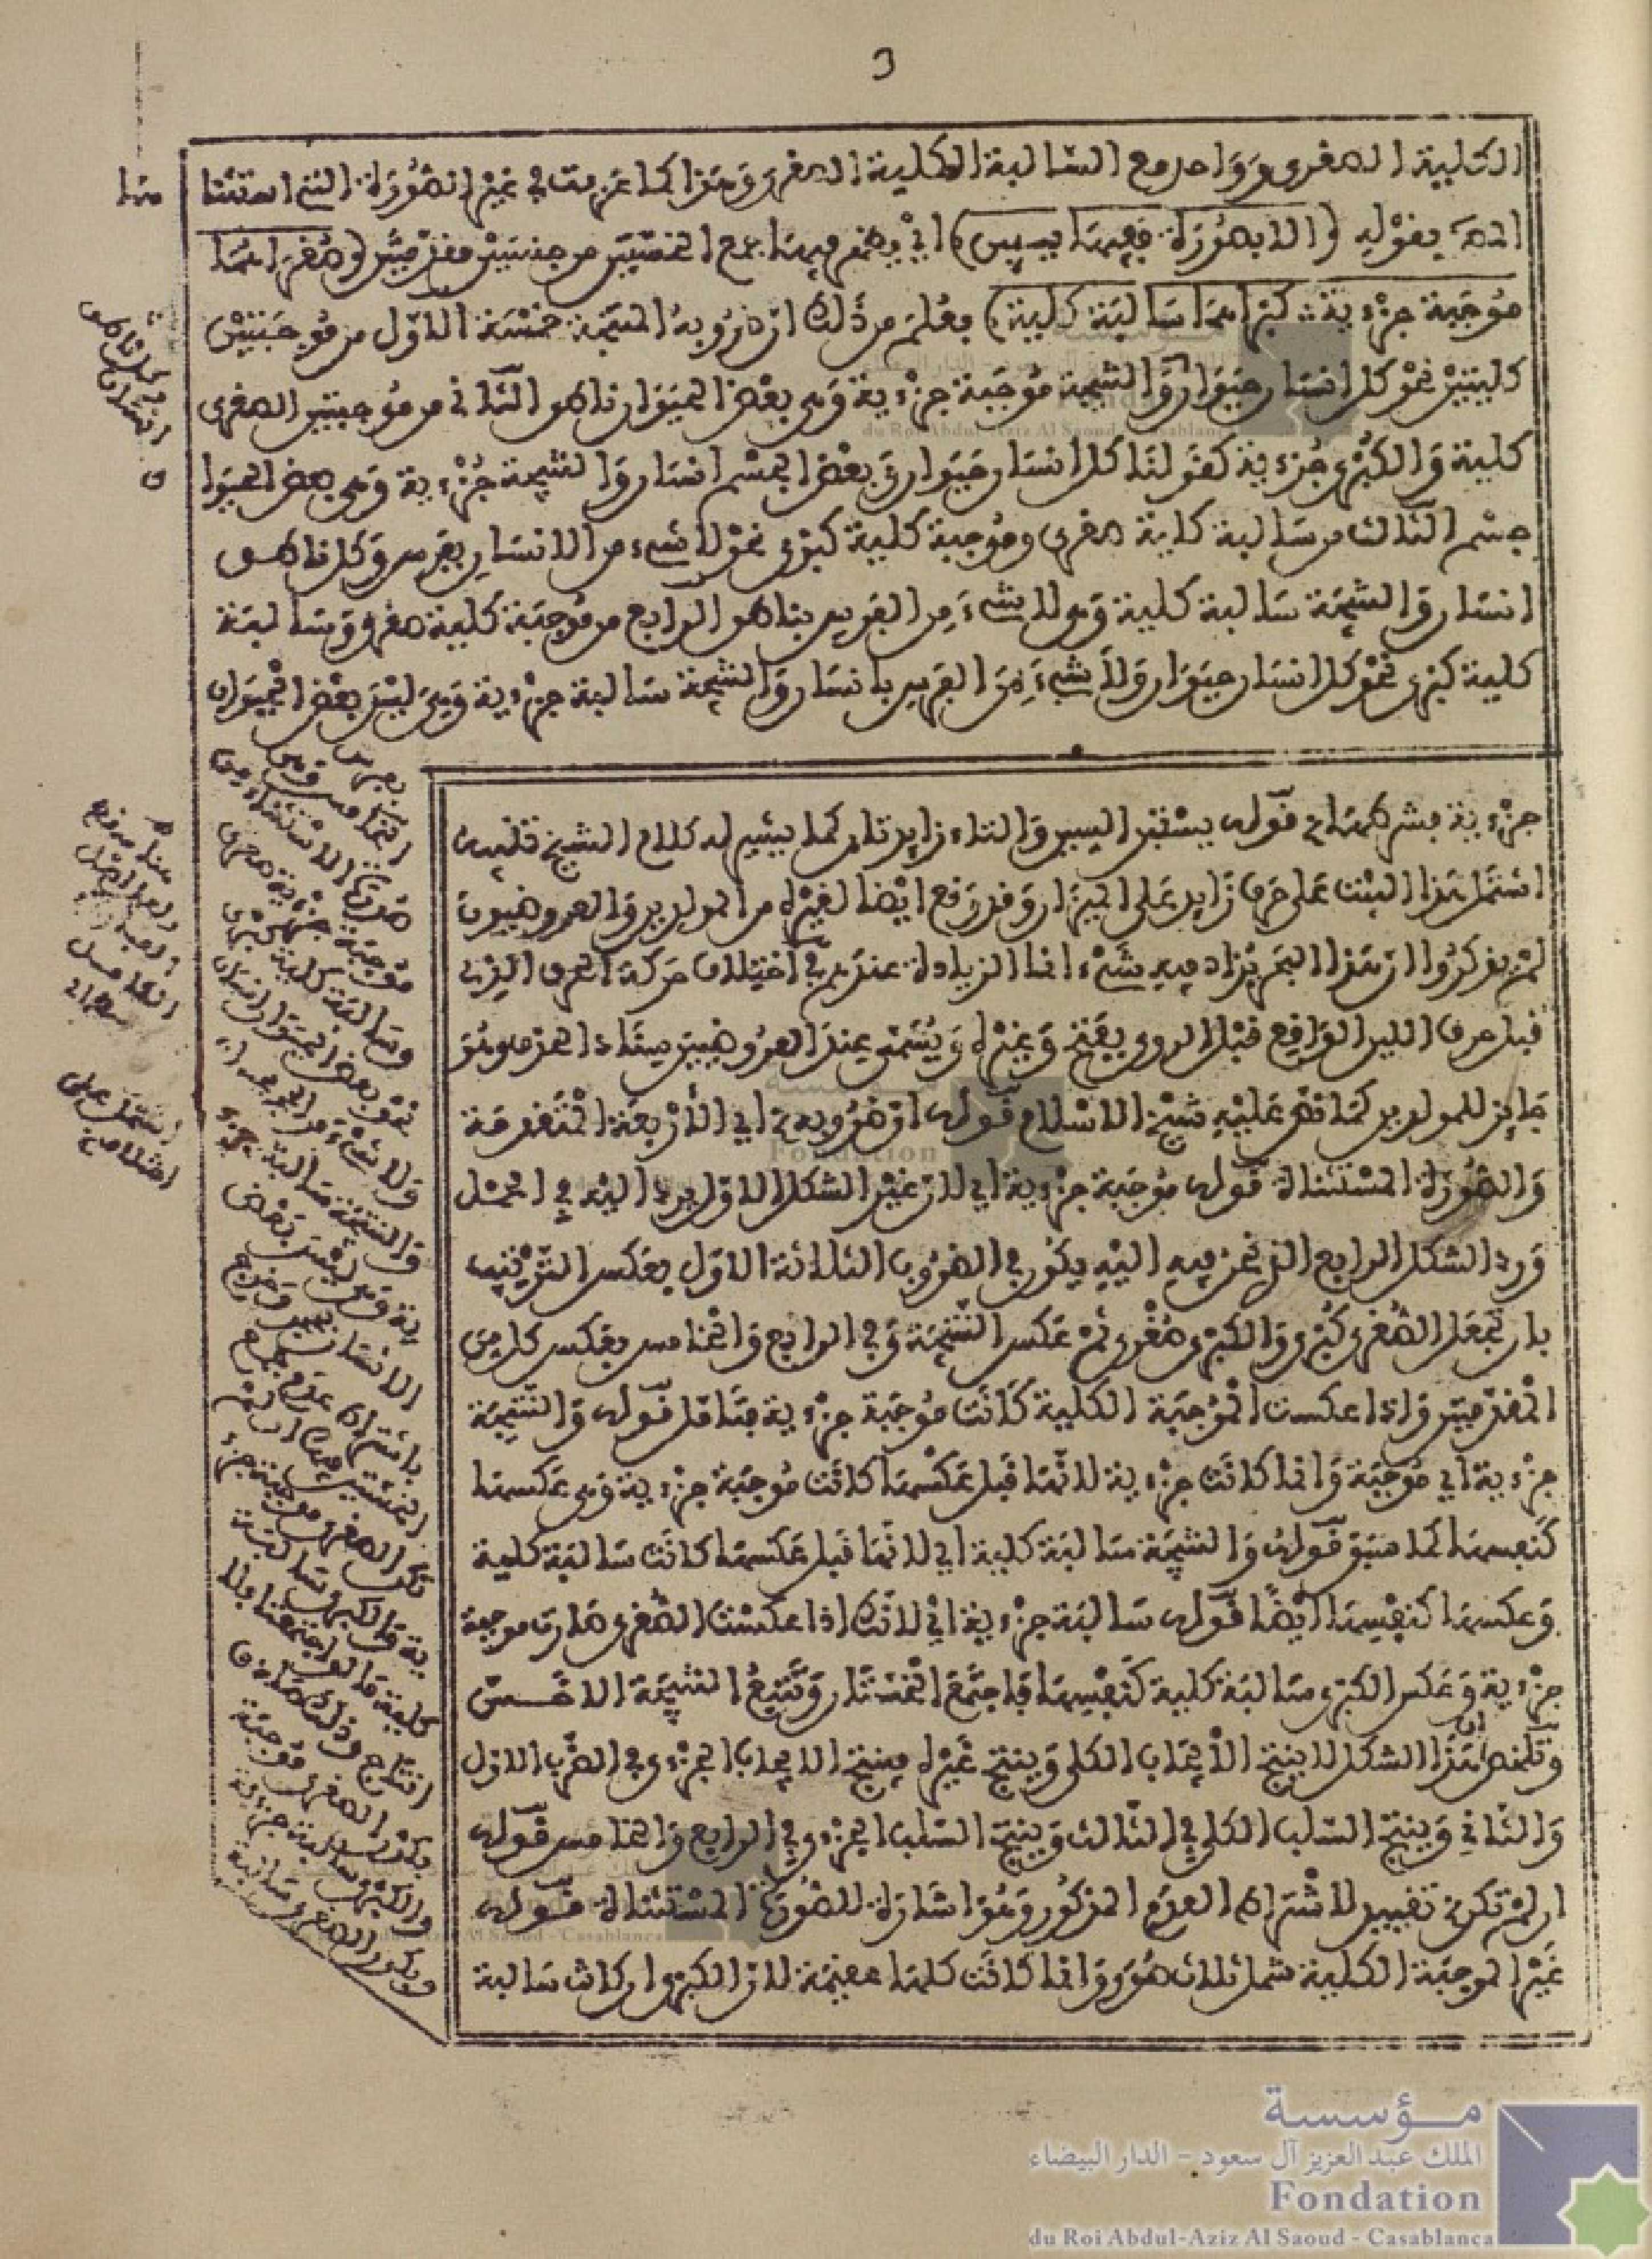 3
الكلية الصغرى وواحد مع السالبة الكلية الصغرى وهذا كما عرفت في غير الصورة التي استثنا
المص بقوله (والا بصورة ففيها يستبين) اي يظهر فيها جمع الخستين من جنسين مقدمتين (صغراهما
موجبة جزءية كبراهما سالبة كلية) فعلم من ذلك ان ضروبه المنتجة خمسة الاول من موجبتين
كليتين نحو كل انسان حيوان والنتيجة موجبة جزءية وهي بعض الحيوان ناطق الثاني من موجبتين الصغرى
كلية والكبرى جزءية كقولنا كل انسان حيوان وبعض الجسم انسان والنتيجة جزءية وهي بعض الحيوان
جسم الثالث من سالبة كلية صغرى وموجبة كلية كبرى نحو لا شيء من الانسان بفرس وكل ناطق
انسان والنتيجة سالبة كلية وهي لا شيء من الفرس بناطق الرابع من موجبة كلية صغرى وسالبة
كلية كبرى نحو كل انسان حيوان ولا شيء من الفرس بانسان والنتيجة سالبة جزءية وهي ليس بعض الحيوان
بفرس
الخامس وهي
صورة الاستثناء من
موجبة جزءية صغرى
وسالبة كلية كبرى
نحو بعض الحيوان انسان
ولا شيء من
والنتيجة سالبة جزء
ية وهي ليس بعض
الانسان
باشتراط عدم جمع
الخستين فيها ان لم
تكن الصغرى موجبة جزء
ية والكبرى سالبة
كلية فان اجتمعتا فلا
انتاج وذلك صادق
بكون الصغرى موجبة
والكبرى سالبة جزءية
وبكون الصغرى سالبة
جزءية فشرطهما الخ قوله يستبن السين والتاء زايدتان كما يشير له كلام الشيخ تنبيه
اشتمل هذا البيت على حرف زايد على الميزان وقد وقع ايضا لغيره من المولدين والعروضيون
لم يذكروا ان هذا البحر يزاد فيه شيء انما الزيادة عندهم في اختلاف حركة الحرف الذي
قبل حرف اللين الواقع قبل الروي بفتح وغيره ويسمى عند العروضيين سناد الحذو وهو
جايز للمولدين كما نص عليه شيخ الاسلام قوله ان ضروبه الخ اي الاربعة المتقدمة
والصورة المستثناة قوله موجبة جزءية اي لان غير الشكل الاول يرد اليه في العمل
ورد الشكل الرابع الذي نحن فيه اليه يكون في الضروب الثلاثة الاول بعكس الترتيب
بان تجعل الصغرى كبرى والكبرى صغرى ثم عكس النتيجة وفي الرابع والخامس بعكس كل من
المقدمتين واذا عكست الموجبة الكلية كانت موجبة جزءية فتامل قوله والنتيجة
جزءية اي موجبة وانما كانت جزءية لانها قبل عكسها كانت موجبة جزءية وهي عكسها
كنفسها كما سبق قوله والنتيجة سالبة كلية اي لانها قبل عكسها كانت سالبة كلية
وعكسها كنفسها ايضا قوله سالبة جزءية اي لانك اذا عكست الصغرى صارت موجبة
جزءية وعكس الكبرى سالبة كلية كنفسها فاجتمع الخستان وتتبع النتيجة الاخس
وتلخص ان هذا الشكل لا ينتج الايجاب الكلي وينتج غيره فينتج الايجاب الجزءي في الضرب الاول
والثاني وينتج السلب الكلي في الثالث وينتج السلب الجزءي في الرابع والخامس قوله
ان لم تكن تقييد لاشتراط العدم المذكور وهو اشارة للصورة المستثناة قوله
غير الموجبة الكلية شمل ثلاث صور وانما كانت كلها عقيمة لان الكبرى ان كانت سالبة
مؤسسة
الملك عبد العزيز آل سعود - الدار البيضاء
Fondation
du Roi Abdul-Aziz Al Saoud - Casablanca